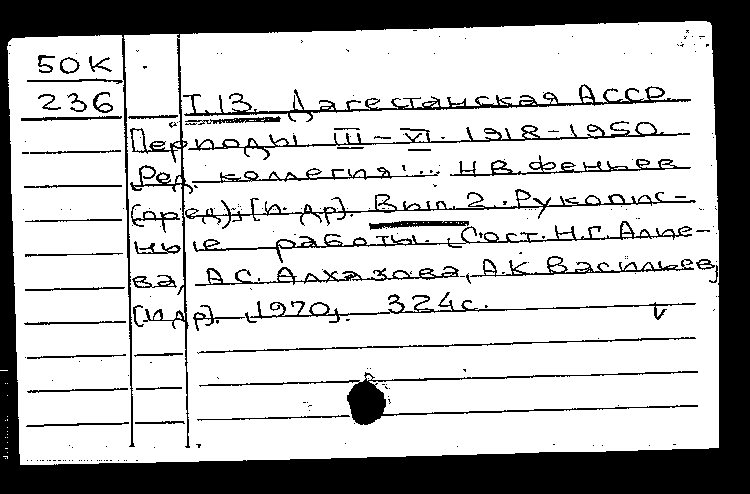 50К
236
Т.13. Дагестанская АССР.
Периоды III – VI. 1918-1950.
Ред. коллегия: .. Н.В. Феньев
(пред); [и др]. Вып. 2. Рукопис-
ные работы. [Сост. Н.Г. Алие-
ва, А.С. Алхазова, А.К. Васильев,
[и др]. [1970]. 324с.
v